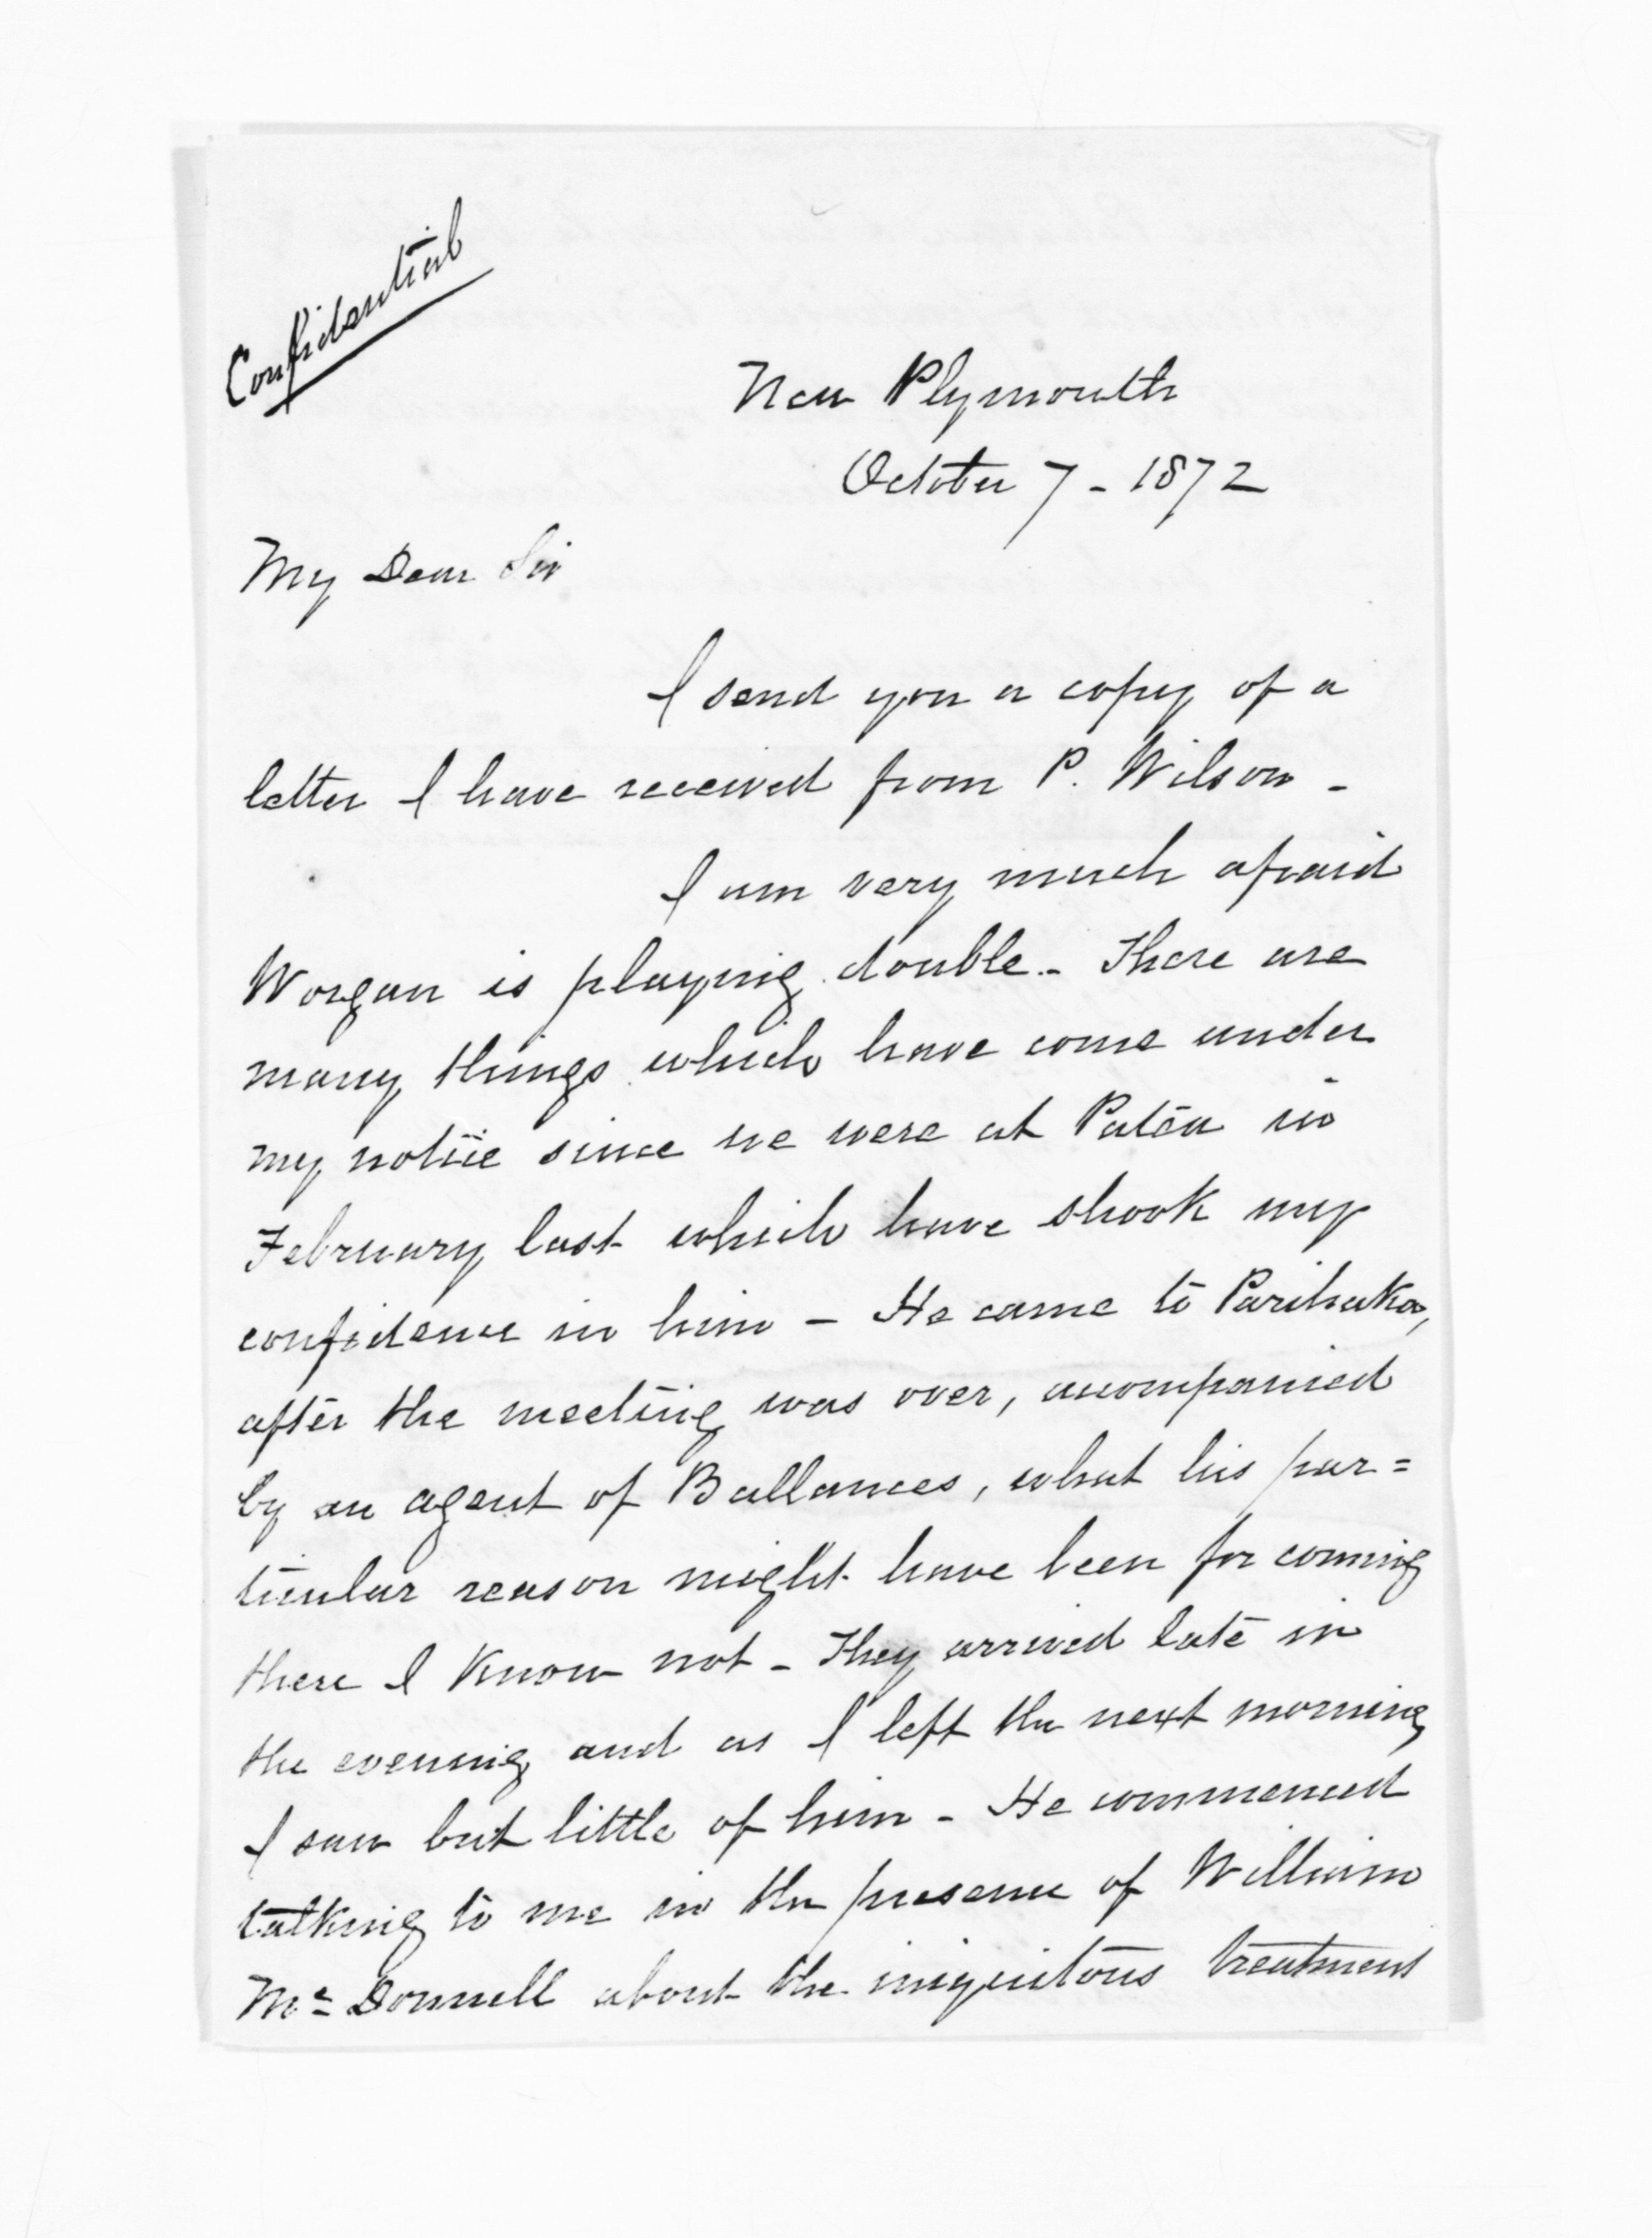 Confidential
New Plymouth
October 7 - 1872
My Dear Sir
I send you a copy of a
letter I have received from P. Wilson -
I am very much afraid
Worgan is playing double - There are
many things which have come under
my notice since we were at Patea in
February last which have shook my
confidence in him - He came to Parihaka,
after the meeting was over, accompanied
by an agent of Ballances, what his par=
ticular reason might have been for coming
there I know not - They arrived late in
the evening and as I left the next morning
I saw but little of him - He commenced
talking to me in the presence of William
McDonnell about the iniquitous treatment